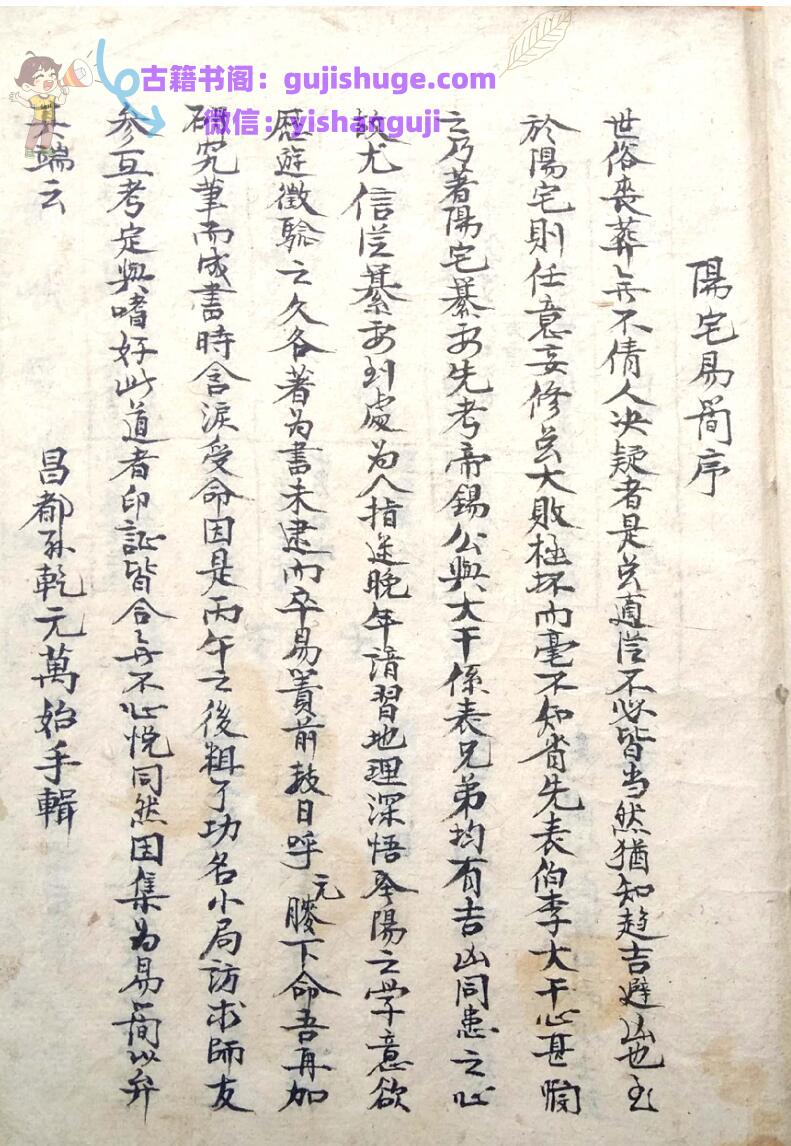 古籍书阁：gujishuge.com
微信：yishanguji
陽宅易簡序
世俗喪葬無不倩人决疑者是否適從不必皆当然猶知趋吉避凶也至
於陽宅則任意妄修至大敗極坏而毫不知省先表伯李大干心甚憫
之乃著陽宅纂要先考帝錫公與大干係表兄弟均有吉凶同患之心
故尤信從纂要到處为人指迷晚年諳習地理深悟陰陽之学意欲
歷遊徵驗之久各著为書未逮而卒易簀前数日呼元膝下命吾再加
研究筆而成書時含淚受命因是丙午之後粗了功名小局訪求師友
参互考定與嗜好此道者印証皆合無不心悦同然因集为易簡以弁
其端云
昌都孙乾元萬始手輯